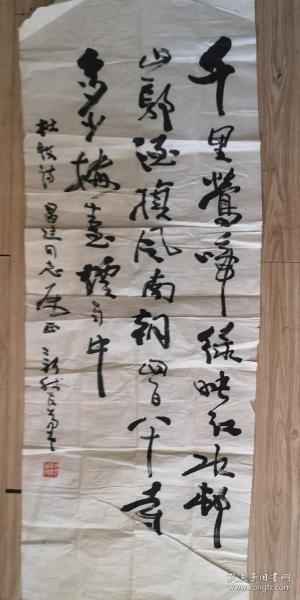 千里莺啼绿映红水邨
山郭酒旗风南朝四百八十寺
多少楼台烟雨中
杜牧诗 昌建同志属正
孔夫子旧书网